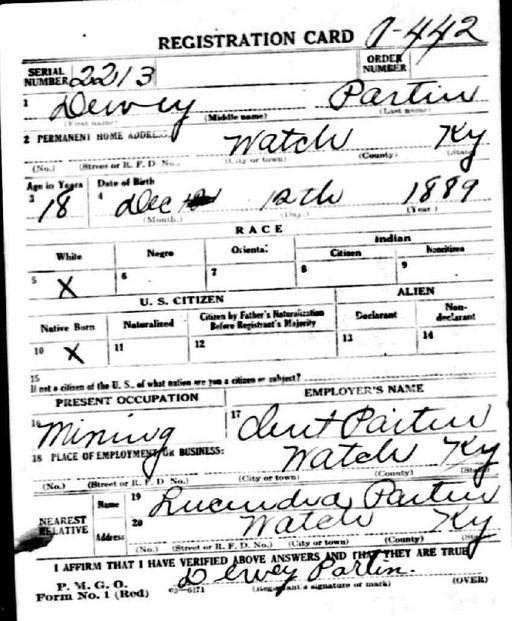 REGISTRATION CARD
SERIAL NUMBER 2213 ORDER NUMBER A-442
1 Dewey Partin
(First name) (Middle name) (Last name)
2 PERMANENT HOME ADDRESS: Watch Ky
(No.) (Street or R. F. D No.) (City or town) (County) (State)
Age in Years Date of Birth
3 18 4 Dec 12th 1889
(Month.) (Day.) (Year.)
RACE
White Negro Oriental Indian
Citizen Noncitizen
5 X 6 7 8 9
U. S. CITIZEN ALIEN
Native Born Naturalized Citizen by Father's Naturalization Before Registrant's Majority Declarant Non-declarant
10 X 11 12 13 14
15
If not a citizen of the U. S., of what nation are you a citizen or subject?
PRESENT OCCUPATION EMPLOYER'S NAME
16 Mining 17 Partin
18 PLACE OF EMPLOYMENT OR BUSINESS: Watch Ky
(No.) (Street or R. F. D No.) (City or town) (County) (State)
NEAREST RELATIVE Name 19 Lucindra Partin
Address 20 Watch Ky
(No.) (Street or R. F. D No.) (City or town) (County) (State)
I AFFIRM THAT I HAVE VERIFIED ABOVE ANSWERS AND THAT THEY ARE TRUE
P. M. G. O.
Form No. 1 (Red) 03-6171 Dewey Partin. (Registrant's signature or mark) (OVER)